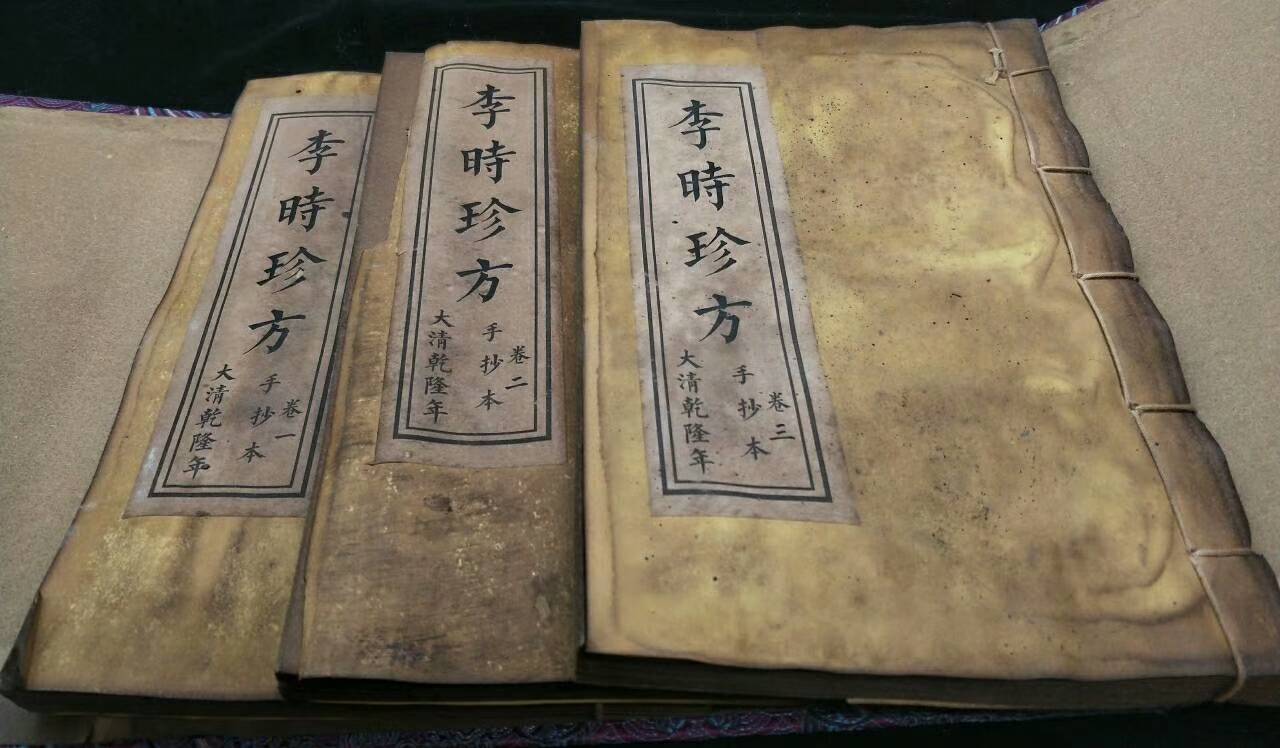 李時珍方
卷一
手抄本
大清乾隆年
李時珍方
卷二
手抄本
大清乾隆年
李時珍方
卷三
手抄本
大清乾隆年